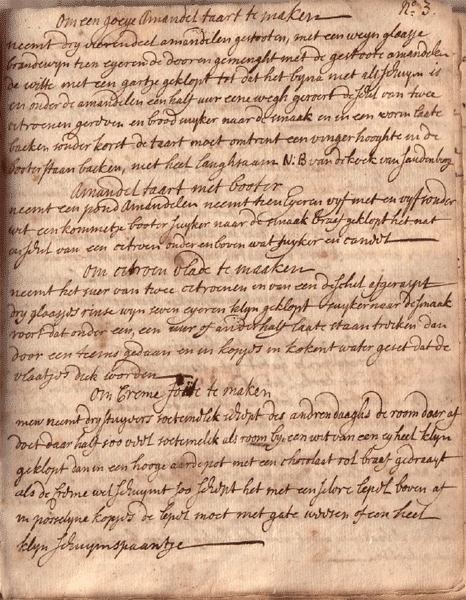 No 3.
Om een goeye Amandel taart te maken
neemt dry vierendeel amandelen gestooten, met een weyn glaasje
brandewyn tien eyeren de dooren gemenght met de gestoote amandelen
de witte met een gartje geklopt tot det het byna niet als schuym is
en onder de amandelen een half uur eene wegh geroert de schel van twee
citroenen gereven en brood suyker naar de smaak en in een worm laate
backen sonder korst de taart moet omtrent een vinger hooghte in de
booter staan backen, met heel langhsaam N:B van de kock van
Amandel taart met booter
neemt een pond Amandelen neemt tien Eyeren vyf met en vyf sonder
wit een kommetje booter suyker naar de smaak braaf geklopt het nat
en schel van een citroen onder en boven wat suyker en caneel
Om citroen vlade te maaken
neemt het suer van twee citroenen en van een de schel afgeraspt
dry glaasjes rinse wyn seven eyeren klyn geklopt suyker naar de smaak
roert dat onder een, een uur of anderhalf laate staan trecken dan
door een teems gedaan en in kopjes in kokent water geset dat de
vlaatjes dick worden
Om Creme te maken
men neemt dry stuyvers soetemelck schept des andren daaghs de room daar af
doet daar half soo veel soetemelck als room by een wit van een ey heel klyn
geklopt dan in een hooge aarde pot met een chocolaat rol braaf gedraayt
als de Creme wel schuymt soo schept het met een silvre lepel boven af
in posselyne kopjes de lepel moet met gate wesen of een heel
klyn schuymspaantje